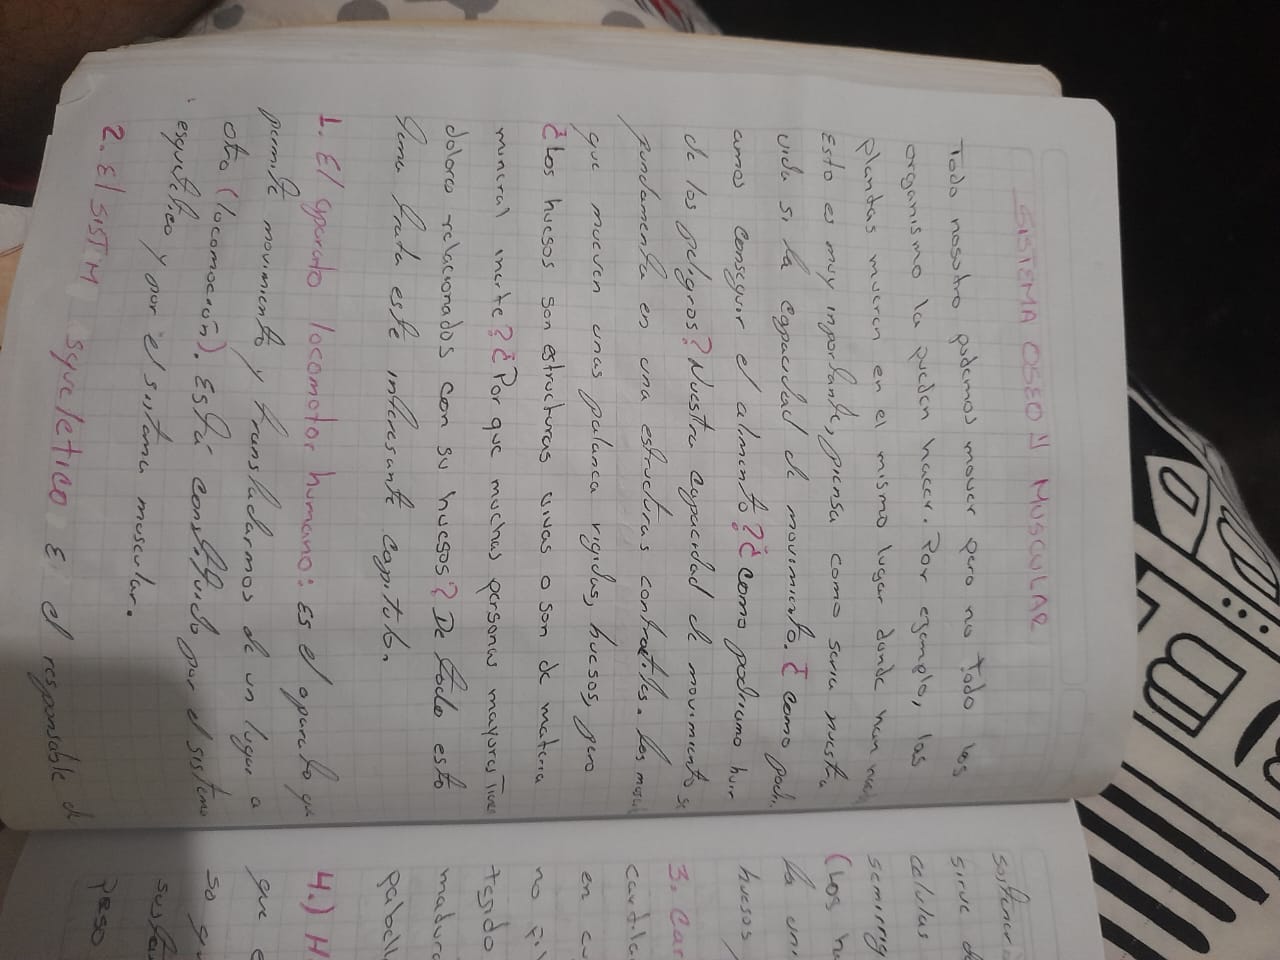 SISTEMA OSEO Y MUSCULAR
Todo nosotro podemos mover pero no todo los
organismo la pueden hacer. Por ejemplo, las
plantas mueren en el mismo lugar donde han
Esto es muy importante, piensa como seria nuestra
vida si la capacidad de movimiento. ¿como podri
amos conseguir el alimento? ¿como podriamo huir
de los peligros? Nuestra capacidad de movimiento se
fundamenta en una estructuras contractiles. Los
que mueven unas palanca rigidas, huesos, pero
¿Los huesos son estructuras vivas o son de materia
mineral inerte? ¿Por que muchas personas mayores
dolores relacionados con su huesos? De todo esto
trata este interesante capitulo.
1. El aparato locomotor humano: Es el aparato que
permite movimiento y transladarmos de un lugar a
otro (locomoción). Esta constituido por el sistema
esquelitico y por el sistema muscular.
2. El SISTM squeletico El el responsable de
sostener
sirve de
celulas
(Los
la uni
huesos,
3. Car
cartila
en
no
tegido
madura
pabell
4.) H
que e
so
susta
peso